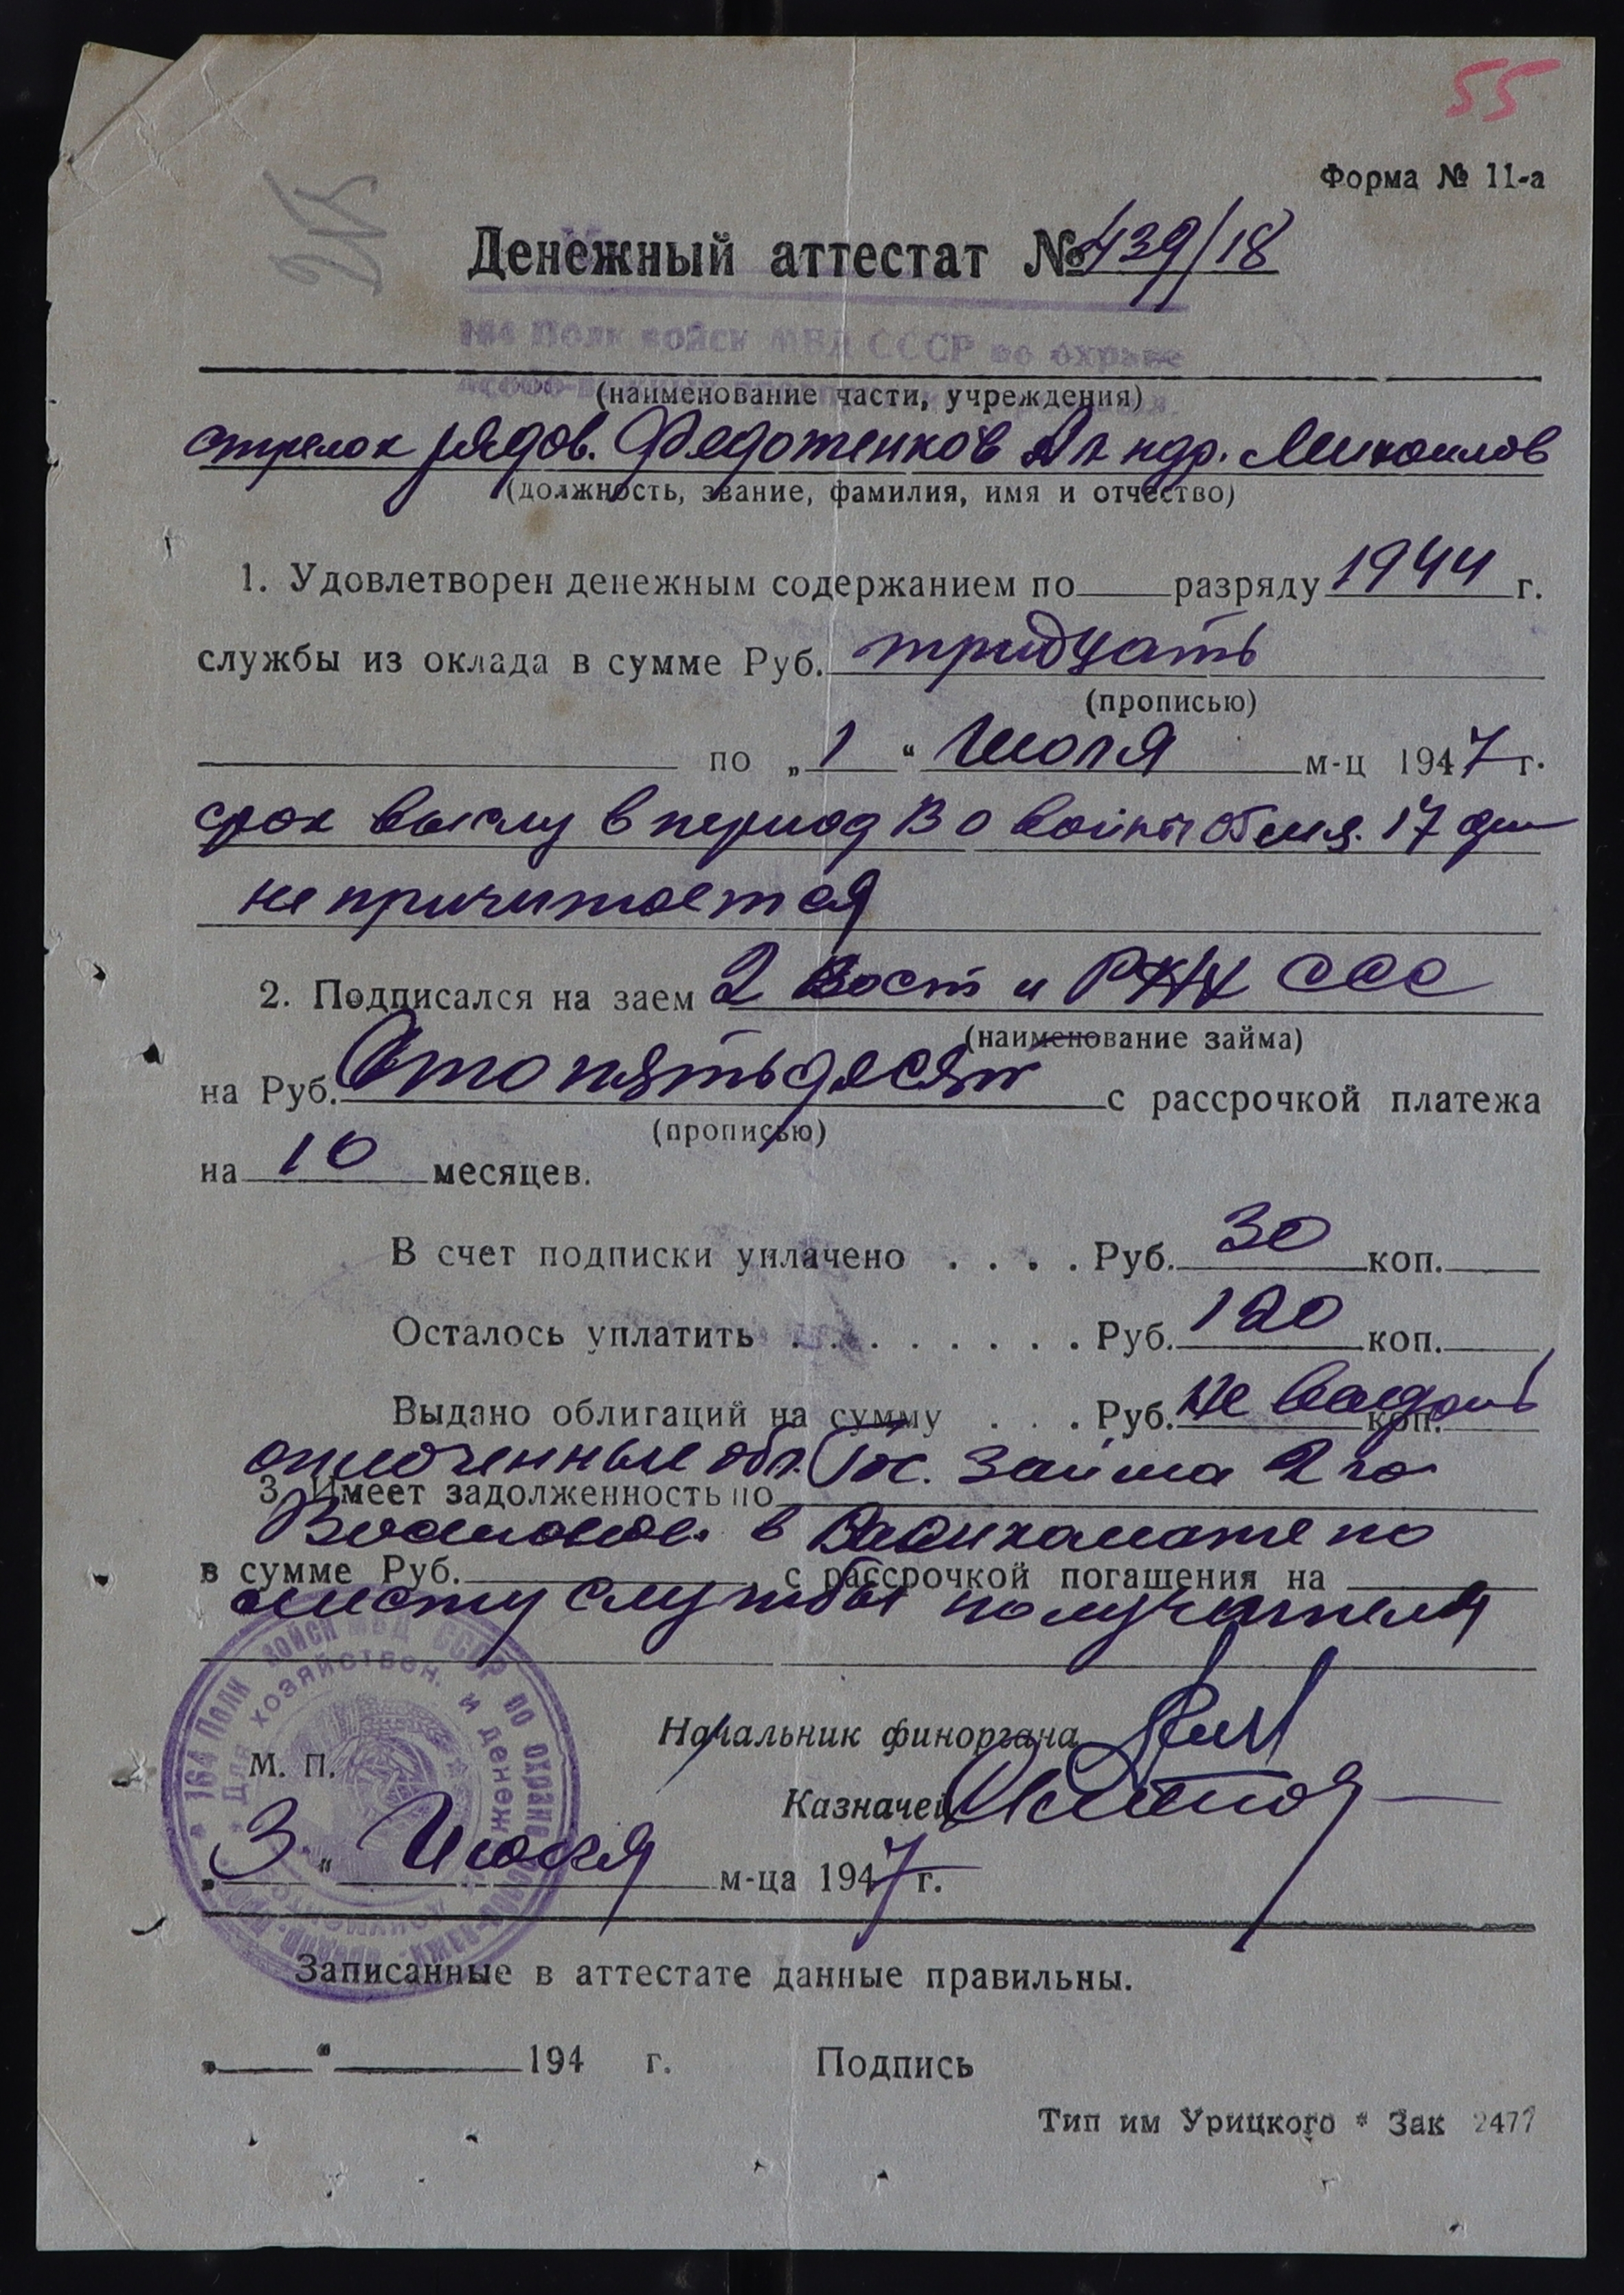 55
Форма № 11-а
Денежный аттестат № 439/18
164 Полк войск МВД СССР по охране
(наименование части, учреждения)
стрелок рядов. Федотенков Ал ндр. Михайлов
(должность, звание, фамилия, имя и отчество)
1. Удовлетворен денежным содержанием по разряду 1944 г.
службы из оклада в сумме Руб. тридцать
(прописью)
по „ 1 “ Июля м-ц 1947 г.
срок выслу в период В О войны 17 дн
не причитается
2. Подписался на заем 2 Вост и РНХ ССС
(наименование займа)
на Руб. Сто пятьдесят с рассрочкой платежа
(прописью)
на 10 месяцев.
В счет подписки уплачено . . . . Руб. 30 коп.
Осталось уплатить . . . . . . . . Руб. 120 коп.
Выдано облигаций на сумму . . . Руб. не коп.
оплоченные обл. Гос. Займа 2 го
3. Имеет задолженность по
в по
в сумме Руб. с рассрочкой погашения на
месту службы получателя
164 Полк войск МВД СССР по охране
Для хозяйствен. и денежн.
Начальник финоргана
М. П.
Казначей
„ 3 “ Июля м-ца 1947 г.
Записанные в аттестате данные правильны.
„ “ 194 г. Подпись
Тип им Урицкого * Зак 2477